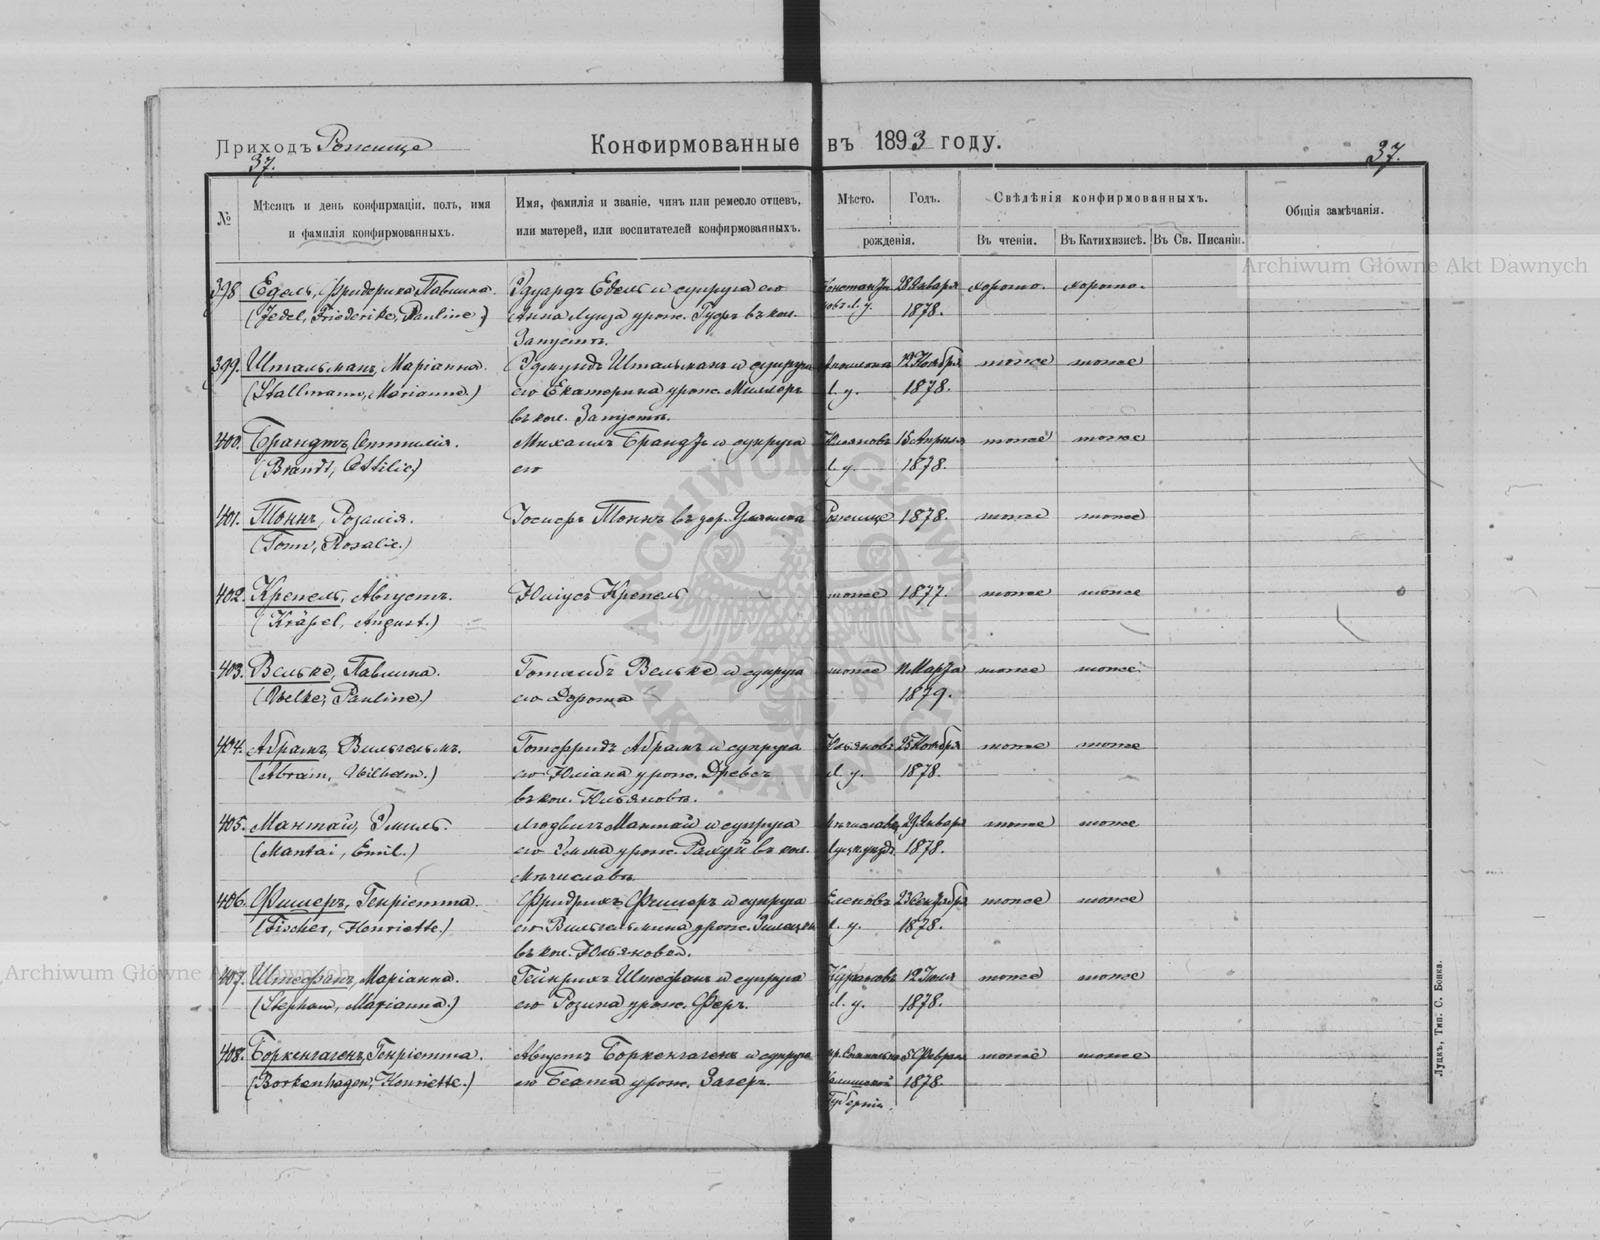 Приходъ Рожище
Конфирмованные въ 1893 году.
37.
37.
№
Мѣсяцъ и день конфирмаціи, полъ, имя
и фамилія конфирмованныхъ.
Имя, фамилія и званіе, чинъ или ремесло отцевъ,
или матерей, или воспитателей конфирмованныхъ.
Мѣсто.
Годъ.
рожденія.
Свѣдѣнія конфирмованныхъ.
Въ чтеніи.
Въ Катихизисѣ.
Въ Св. Писаніи.
Общія замѣчанія.
398 Едель, Фридерика, Павлина. Эдуардъ Едель и супруга его 28 Января хорошо. хорошо.
(Jedel, Friederike, Pauline) Анна Луиза урож. въ кол. 1878.
Запустъ.
399. Штальманъ, Маріанна. Эдмундъ Штальманъ и супруга 12 Ноября тоже тоже
(Stallmann, Marianne.) его Екатерина урож. Миллеръ Л. у. 1878.
въ кол. Запустъ.
400. Брандтъ, Оттилія. Михаилъ Брандтъ и супруга 15 Апреля тоже тоже
(Brandt, Ottilie) его Л. у. 1878.
401. Тоннъ, Розалія. Іосифъ Тоннъ въ дер. Рожище 1878. тоже тоже
(Tonn, Rosalie.)
402. Крепель, Августъ. Юліусъ Крепель тоже 1877. тоже тоже
(Kräpel, August.)
403. Вельке, Павлина. Готлибъ Вельке и супруга тоже 11 Марта тоже тоже.
(Welke, Pauline.) его Дорота 1879.
404. Абрамъ, Вильгельмъ. Готфридъ Абрамъ и супруга Юльяновъ 25 Ноября тоже тоже
(Abram, Wilhelm.) его Юліана урож. Древсъ Л. у. 1878.
въ кол. Юльяновъ.
405. Мантай, Эмиль. Людвигъ Мантай и супруга Мѣчиславъ Января тоже тоже
(Mantai, Emil.) его Эмма урож. въ кол. 1878.
Мѣчиславъ
406. Фишеръ, Генріетта. Фридрихъ Фишеръ и супруга Еленовъ тоже тоже
(Fischer, Henriette.) его Вильгельмина урож. Л. у. 1878.
въ кол. Юльяновка.
407. Штефанъ, Маріанна. Гейнрихъ Штефанъ и супруга 12 Іюля тоже тоже
(Stephan, Marianna.) его Розина урож. Л. у. 1878.
408. Боркенгагенъ, Генріетта. Августъ Боркенгагенъ и супруга 5 Февраля тоже тоже
(Borkenhagen, Henriette.) его Беата урож. Загеръ. Калишской 1878.
Губерніи.
Луцкъ, Тип. С. Бонка.
Archiwum Główne Akt Dawnych
Archiwum Główne Akt Dawnych
ARCHIWUM GŁÓWNE AKT DAWNYCH